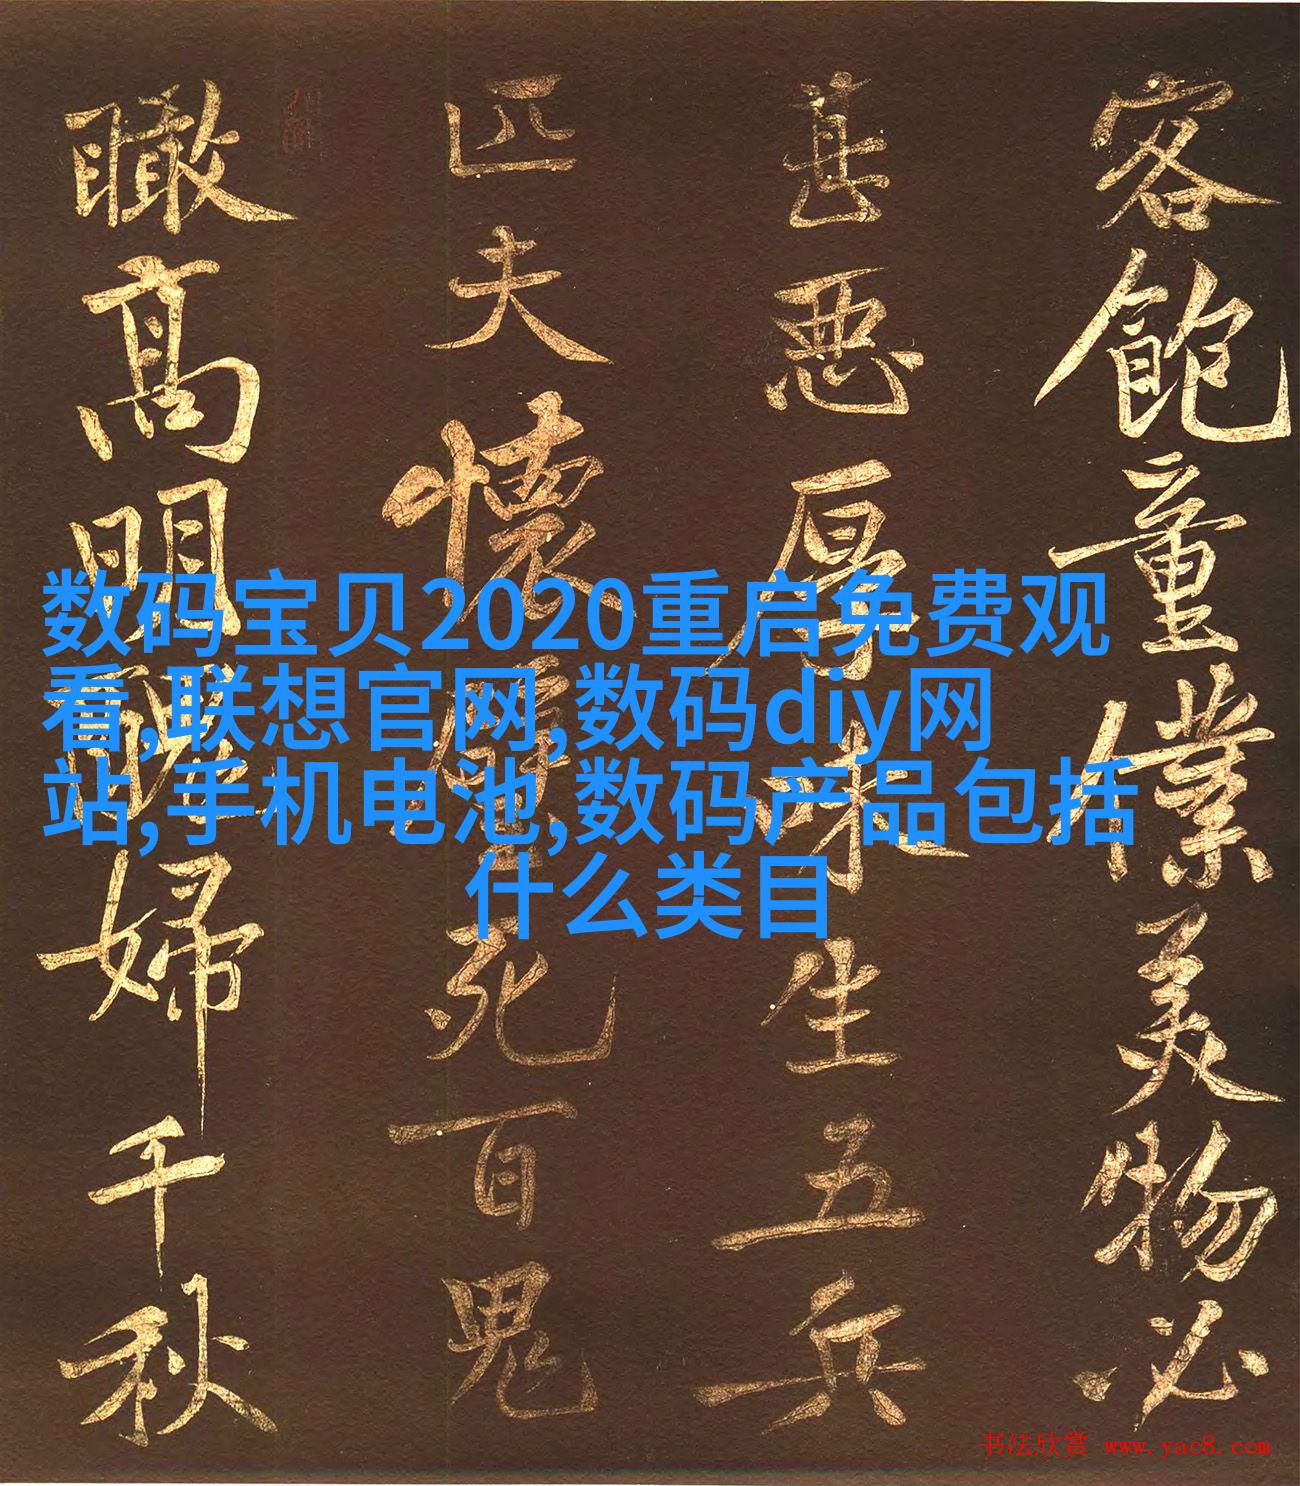 客飽童僕美物必
甚惡厚味生五兵
匹夫懷璧死百鬼
瞰高明醜婦千秋
数码宝贝2020重启免费观
看,联想官网,数码diy网
站,手机电池,数码产品包括
什么类目
书法欣赏 www.yac8.com